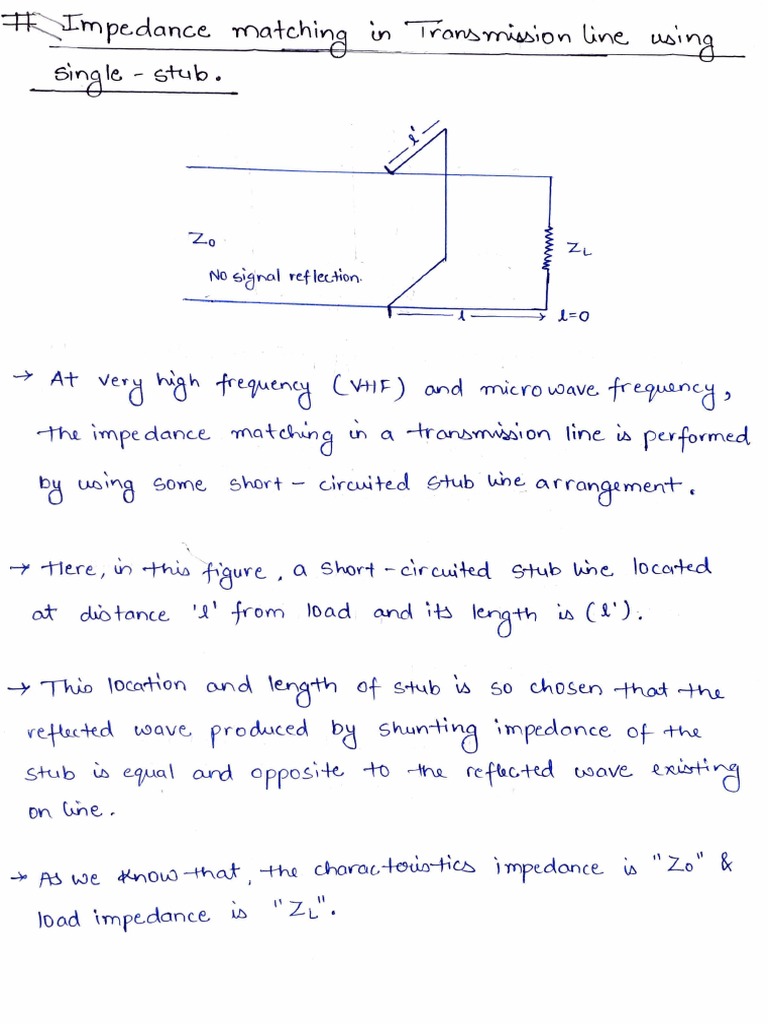 # Impedance matching in Transmission line using
single-stub.
l'
Z₀
ZL
No signal reflection.
l
l=0
→ At very high frequency (VHF) and microwave frequency,
the impedance matching in a transmission line is performed
by using some short-circuited stub line arrangement.
→ Here, in this figure, a short-circuited stub line located
at distance 'l' from load and its length is (l').
→ This location and length of stub is so chosen that the
reflected wave produced by shunting impedance of the
stub is equal and opposite to the reflected wave existing
on line.
→ As we know that, the characteristics impedance is "Z₀" &
load impedance is "ZL".